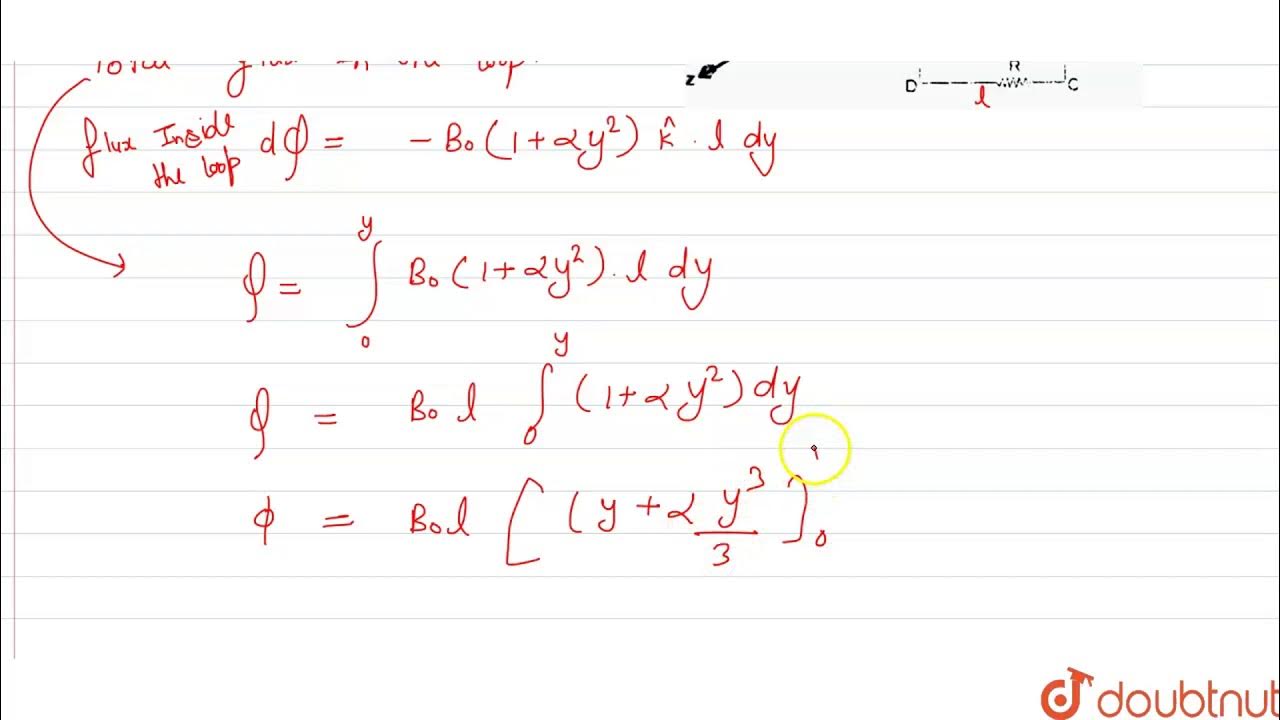 R
z D l C
flux Inside the loop dϕ = - B₀ (1 + αy²) k̂ . l dy
ϕ = ∫₀ʸ B₀ (1 + αy²) . l dy
ϕ = B₀ l ∫₀ʸ (1 + αy²) dy
ϕ = B₀l [ (y + α y³/3 ]₀
doubtnut